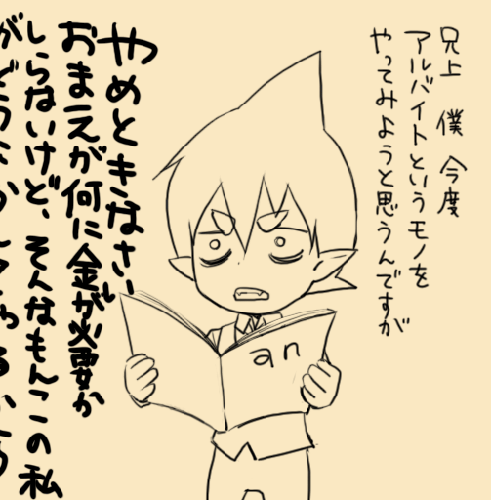 兄上 僕 今度
アルバイトというモノを
やってみようと思うんですが
an
やめときなさい
おまえが何に金が必要か
しらないけど、そんなもんこの私
がどうにかしてやるから